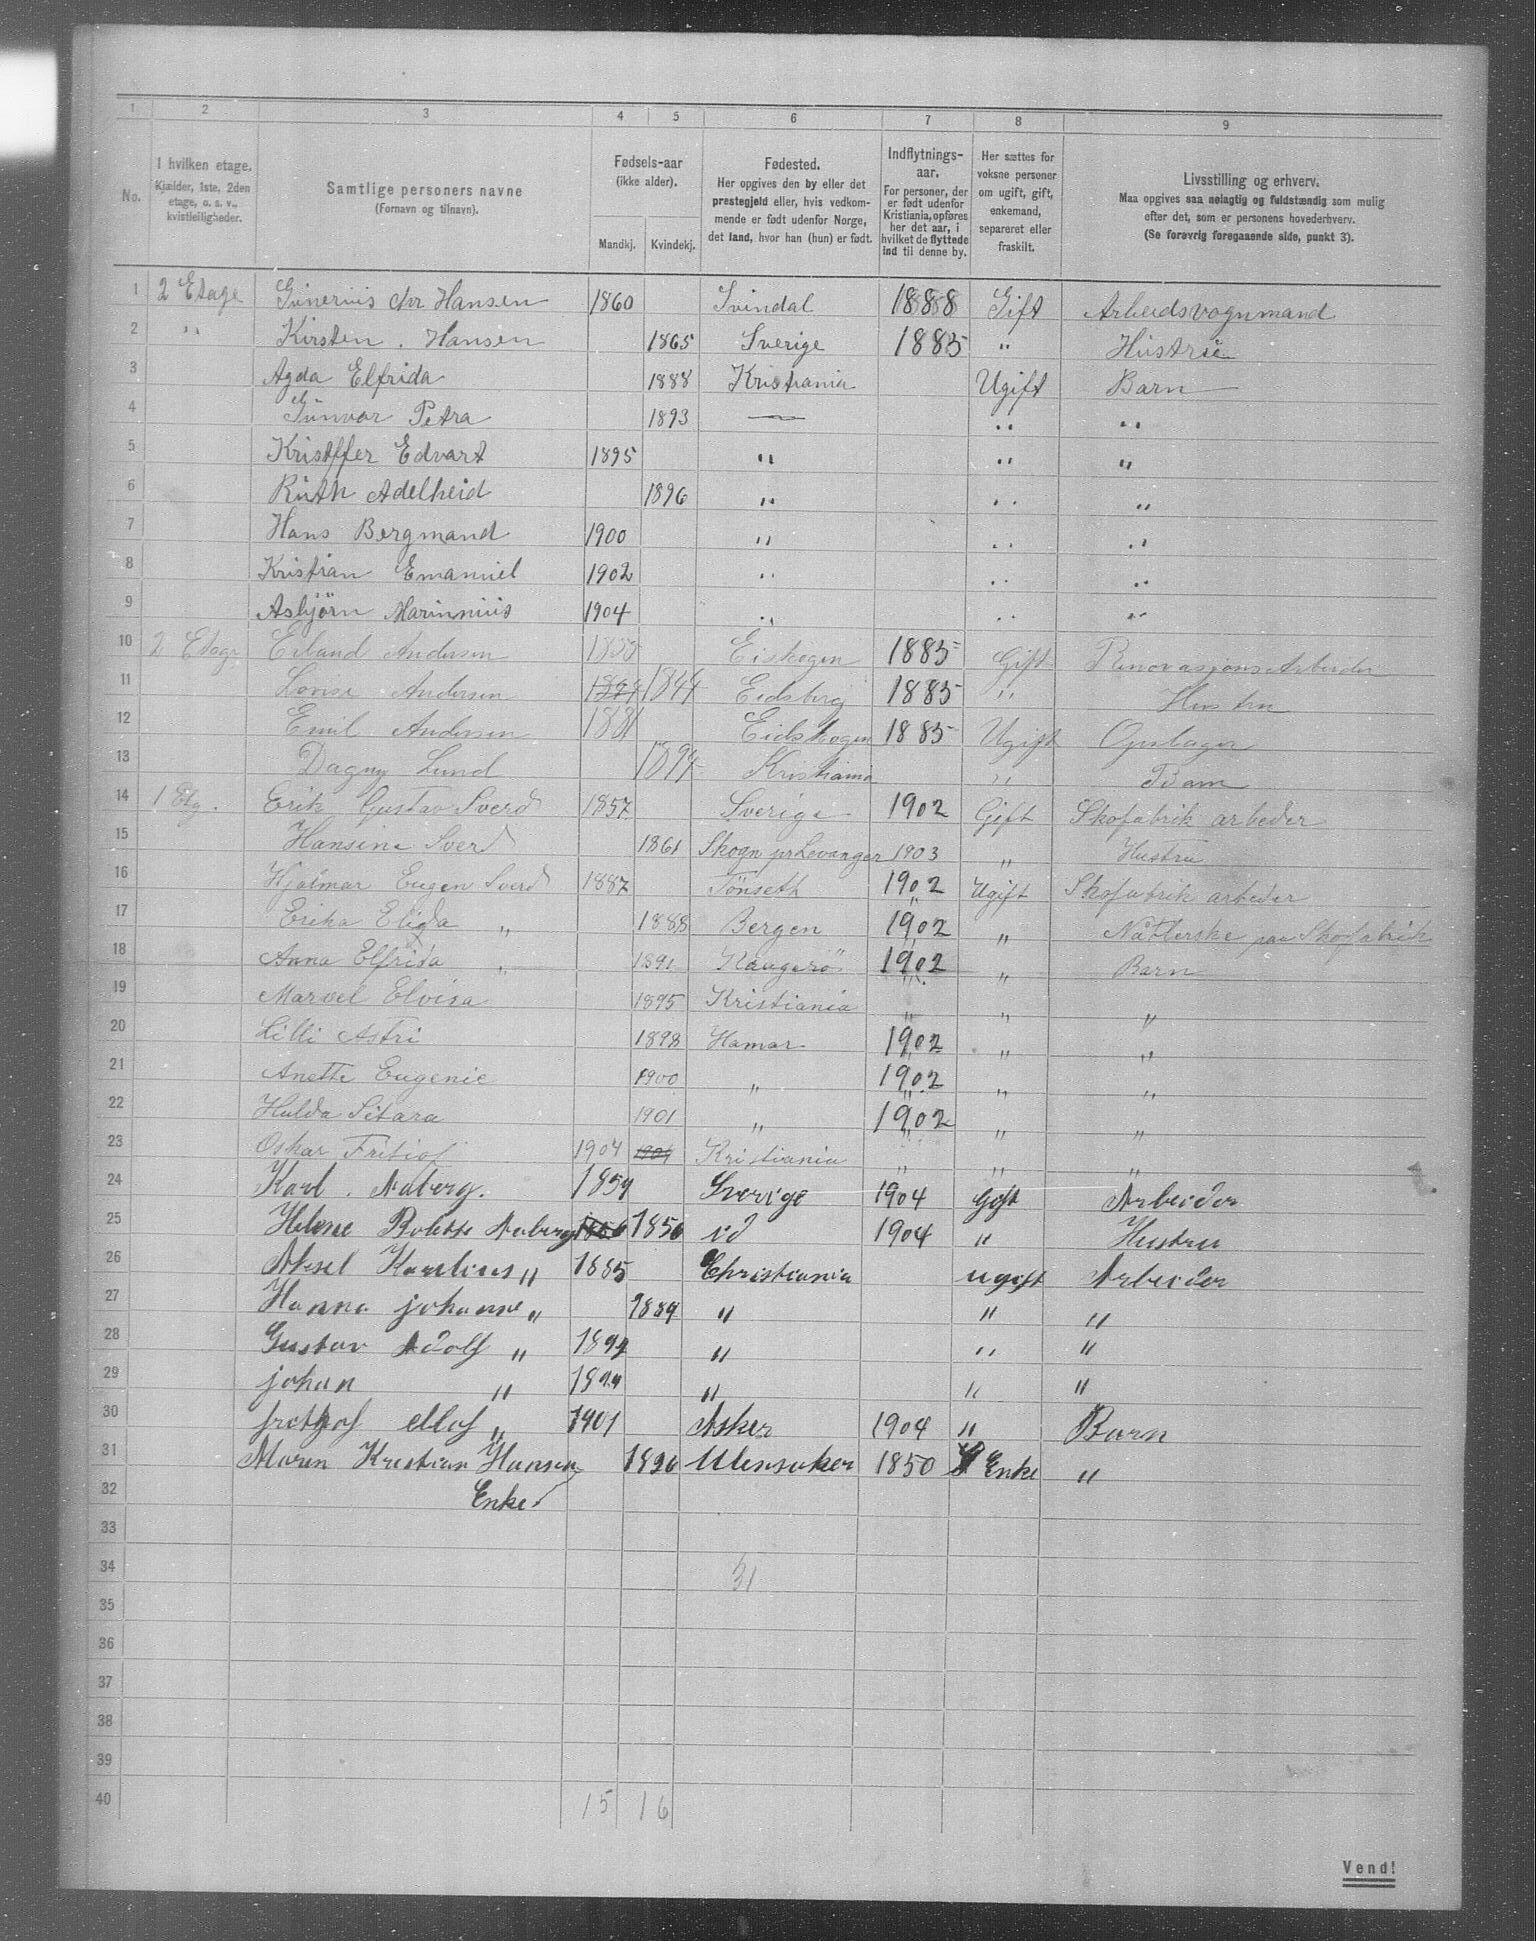 1 2 3 4 5 6 7 8 9
No.
I hvilken etage. Kjælder, 1ste, 2den etage, o. s. v., kvistleiligheder.
Samtlige personers navne (Fornavn og tilnavn).
Fødsels-aar (ikke alder).
Mandkj. Kvindekj.
Fødested. Her opgives den by eller det prestegjeld eller, hvis vedkommende er født udenfor Norge, det land, hvor han (hun) er født.
Indflytnings-aar. For personer, der er født udenfor Kristiania, opføres her det aar, i hvilket de flyttede ind til denne by.
Her sættes for voksne personer om ugift, gift, enkemand, separeret eller fraskilt.
Livsstilling og erhverv. Maa opgives saa nøiagtig og fuldstændig som mulig efter det, som er personens hovederhverv. (Se forøvrig foregaaende side, punkt 3).
1 2 Etage Gunerius Chr Hansen 1860 Svindal 1888 Gift Arbeidsvognmand
2 " Kirsten . Hansen 1865 Sverige 1885 " Hustrue
3 Agda Elfrida 1888 Kristiania Ugift Barn
4 Gunvor Petra 1893 — " "
5 Kristffer Edvart 1895 " " "
6 Ruth Adelheid 1896 " " "
7 Hans Bergmand 1900 " " "
8 Kristian Emanuel 1902 " " "
9 Asbjörn Marinnius 1904 " " "
10 2 Etage Erland Andersen 1885 Gift Renovasjons Arbeider
11 Lovise Andersen 1844 Eidsberg 1885 " Hustru
12 Emil Andersen 1881 Eidskogen 1885 Ugift
13 Dagny Lund 1894 Kristiania "
14 1 Etg. Erik Gustav Sverd 1857 Sverige 1902 Gift Skofabrik arbeder
15 Hansine Sverd 1861 Skogn pr Levanger 1903 " Hustru
16 Hjalmar Eugen Sverd 1887 Tönseth 1902 Ugift Skofabrik arbeder
17 Erika Elida " 1888 Bergen 1902 " Nåtlerske paa Skofabrik
18 Anna Elfrida " 1891 1902 " Barn
19 Marvel Elvisa 1895 Kristiania " " "
20 Lilli Astri 1898 Hamar 1902 " "
21 Anette Eugenie 1900 " 1902 " "
22 Hulda Sitara 1901 " 1902 " "
23 Oskar Fritiof 1904 1904 Kristiania " " "
24 Karl . Aaberg. 1859 Sverige 1904 Gift Arbeider
25 Helene Bolette Aaberg 1856 1856 id 1904 " Hustru
26 Aksel Karelius " 1885 Christiania ugift Arbeider
27 Hanna johanne " 1889 " " "
28 Gustav Adolf " " " "
29 johan " " " "
30 " 1901 Asker 1904 " Barn
31 Maren Kristian Hansen Ulensaker 1850 Enke "
32 Enke
33
34 31
35
36
37
38
39
40 15 16
Vend!